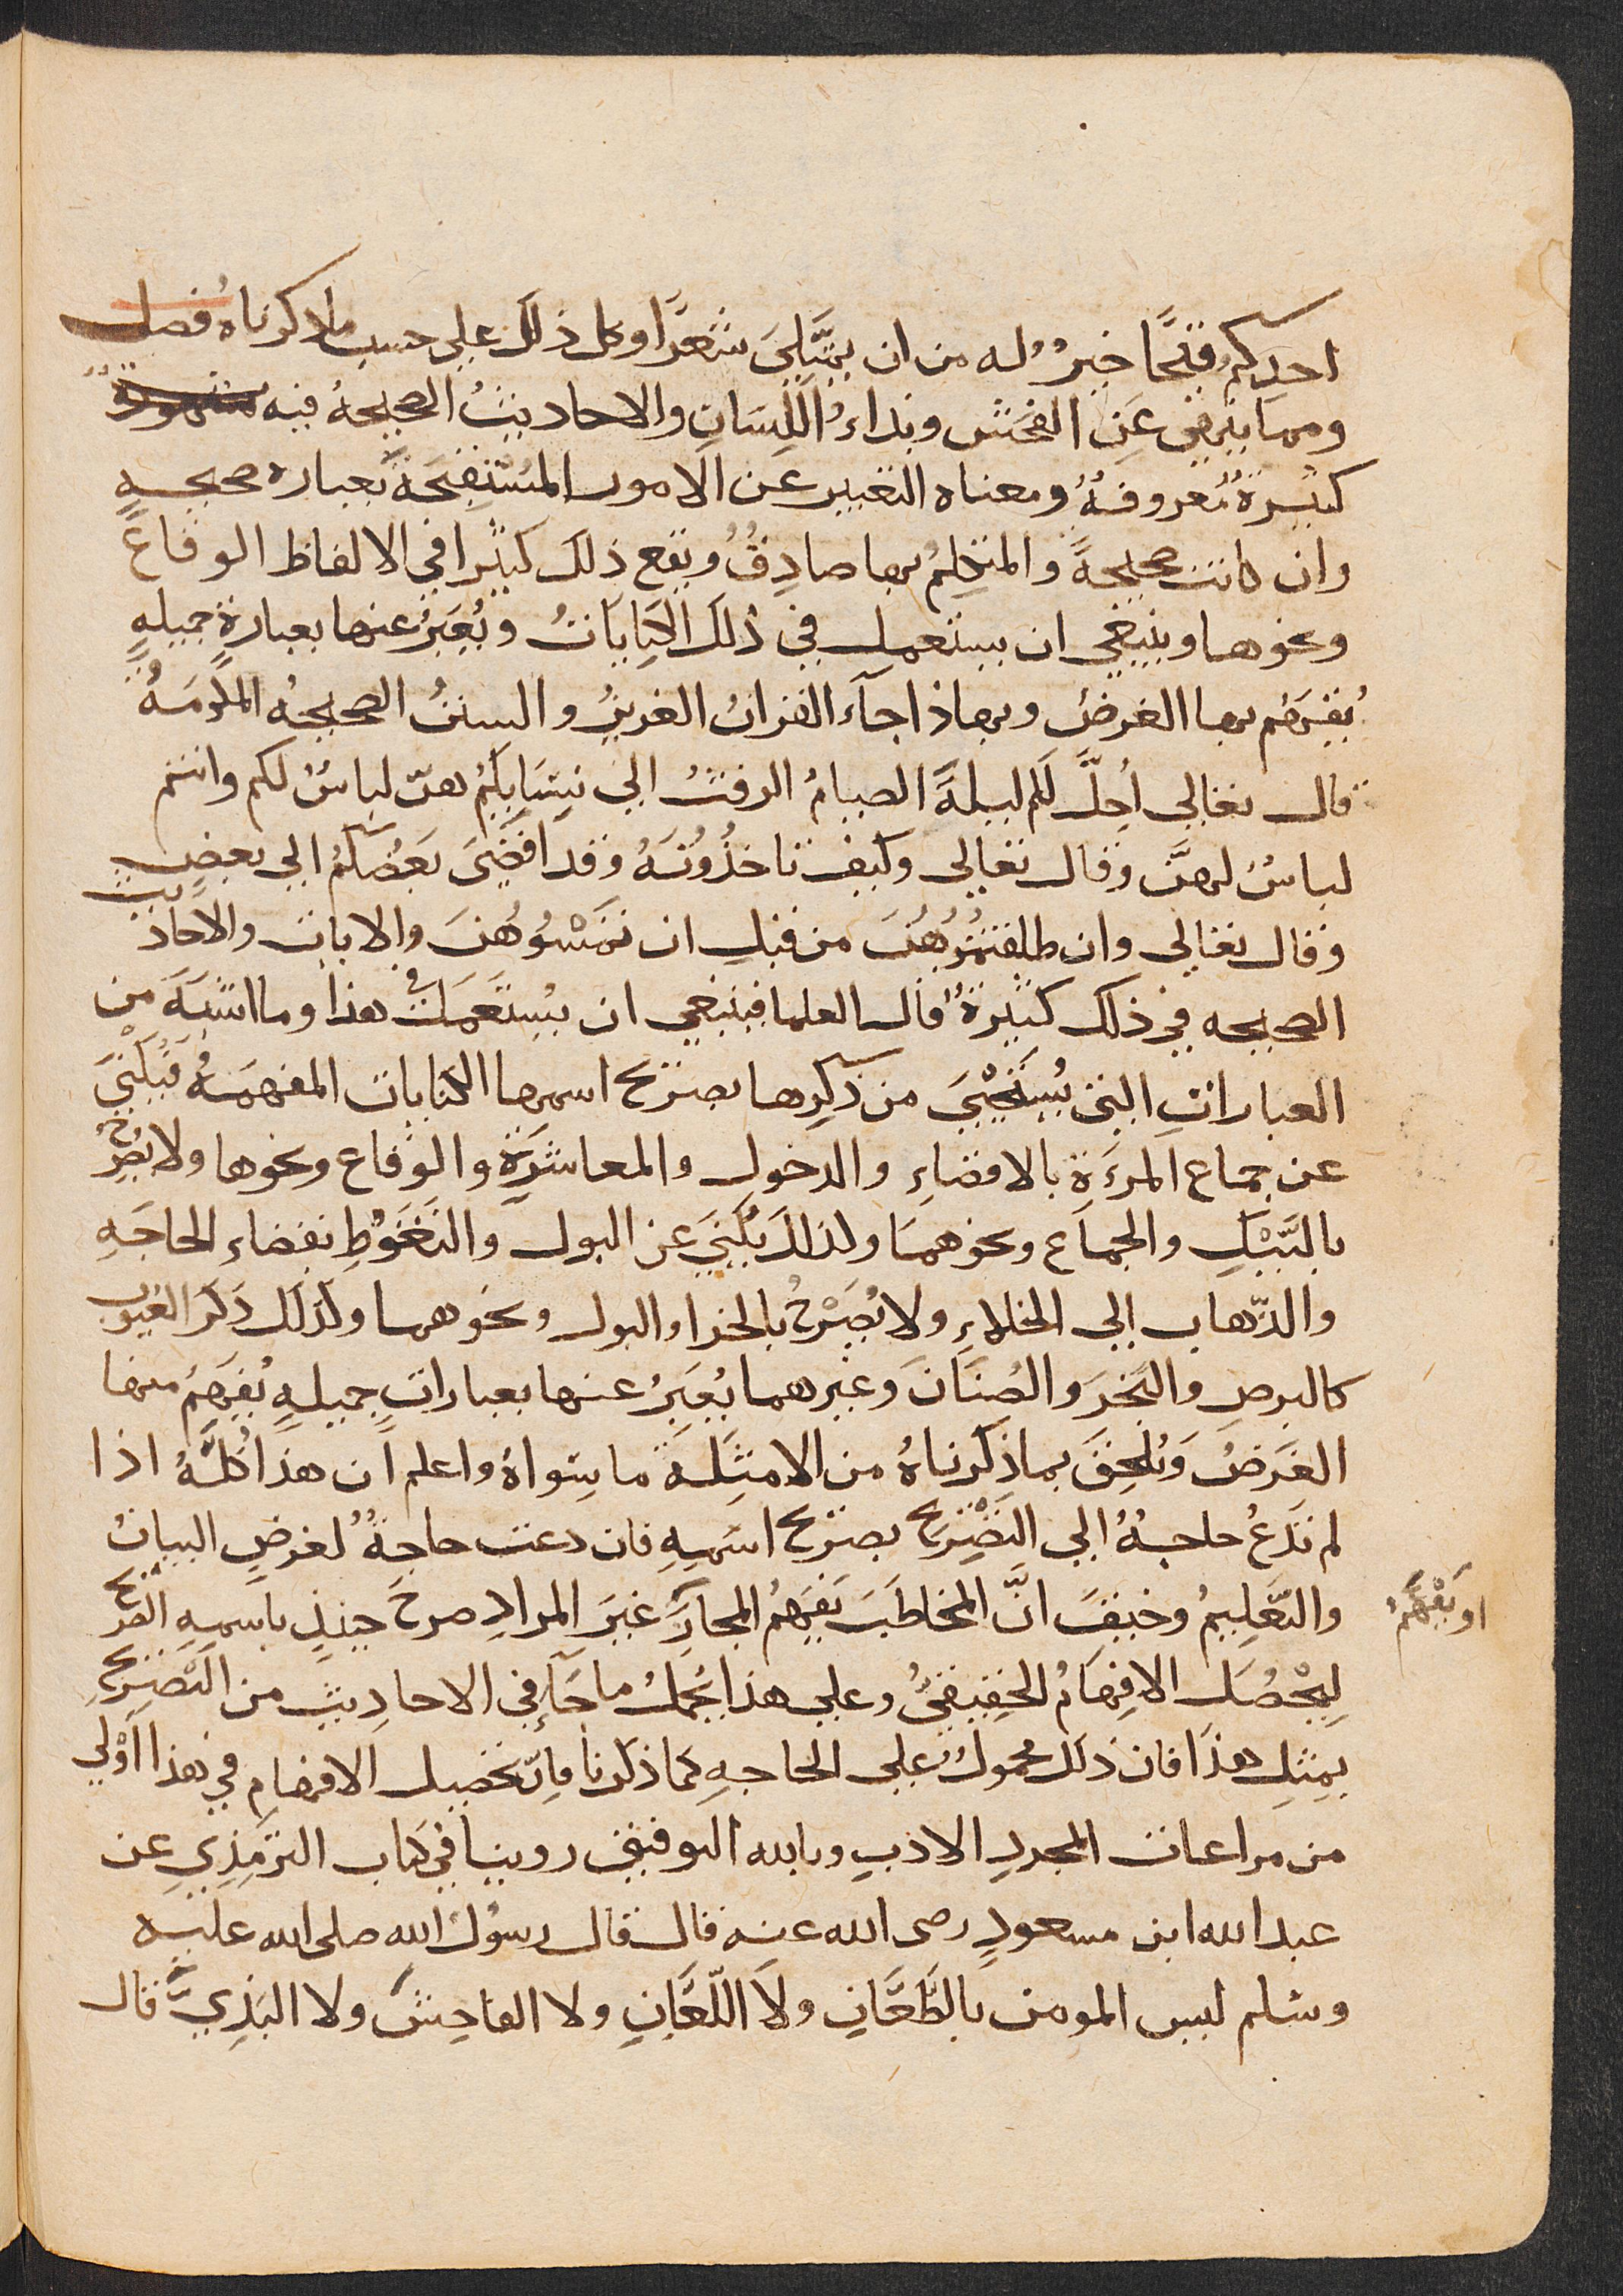 احدكم قيحًا خيرٌ له من ان يمتلىَ شعرًا وكل ذلك على حسب ماذكرناه فصل
ومما ينهى عَنِ الفحش وبذاءُ اللِّسَانِ والاحاديثُ الصحيحهُ فيه مشهورة
كثيرةٌ معروفةٌ ومعناه التعبير عن الامور المُسْتقبَحَة بعباره صحيحهٍ
وان كانت صحيحةً والمتكلِمُ بها صادِقٌ ويقع ذلك كثيرا في الالفاظ الوقاع
ونحوها وينبغي ان يستعمل في ذلك الكِنايَاتُ ويُعَبَرُ عنها بعبارة جميلهٍ
يُفهَم بها الغرضُ وبهاذا جآء القران العزيزُ والسننُ الصحيحهُ المكرمَهُ
قال تعالى أحِلَّ لكم ليلةَ الصيامُ الرفثُ الى نِسَايِكُمْ هنّ لباسٌ لكم وانتم
لباسٌ لهنَّ وقال تعالى وكيف تاخذُونَهُ وقد افضَى بَعْضُكُمْ الى بعضٍ
وقال تعالى وان طلقتمُوهُنَ من قبل ان تمَسُوهُنَ والايات والاحاديث
الصحيحه في ذلك كثيرةٌ قال العلما فينبغي ان يُستَعمَلَ في هذا وما اشبهَ من
العباراتِ التى يُستَحْيىَ من ذكرها بصريح اسمها الكنايات المفهمَهُ فَيُكَنى
عن جماع المرءَةِ بالافضاءِ والدخول والمعاشرَةِ والوقاع ونحوها ولا يُصرِّحُ
بالنَّيْكِ والجماع ونحوهمَا وكذلكَ يُكَنىَ عن البول والتغَوُّطِ بقضاءِ الحاجَهِ
والذّهاب الى الخلاءِ ولا يُصَرِّحُ بالخرا والبول ونحوهما وكذلك ذكرَ العيوب
كالبرصِ والبَخرَ والصُنَانَ وغيرهما يُعَبَرُ عنها بعباراتٍ جميلهٍ يُفهَمُ منها
الغَرَضُ وَيُلحِقَ بماذكرناهُ من الامثِلَةَ ما سِواهُ واعلم ان هذا كُلَّهُ اذا
لم تَدعُ حاجهُ الى التَصْرِيح بصريح اسمِهِ فان دعت حاجَةٌ لغرضِ البيانُ
والتَّعليمُ وخيفَ انَّ المخاطبَ يَفهَمُ المجازَ غيرَ المرادِ صرحَ حينئذٍ باسمِهِ الصريح
او يَفْهَمُ
لِيَحْصُلَ الافهامُ الحقيقيُّ وعلى هذا يُحمَلُ ما جآءَ في الاحاديثِ من التَصْرِيحِ
بمثلِ هذا فان ذلك محمولٌ على الحاجهِ كما ذكرنا فإنّ تحصيل الافهامِ في هذا اوْلى
من مراعات المجردِ الادبِ وبالله التوفيق روينا في كتاب الترمِذِيِ عن
عبد الله ابن مسعودٍ رضى الله عنه قال قال رسُولُ الله صلى الله عليه
وسلم ليس المومن بالطَّعَّانِ ولَا اللّعَّانِ ولا الفاحِشَ ولا البَذِيَّ قال